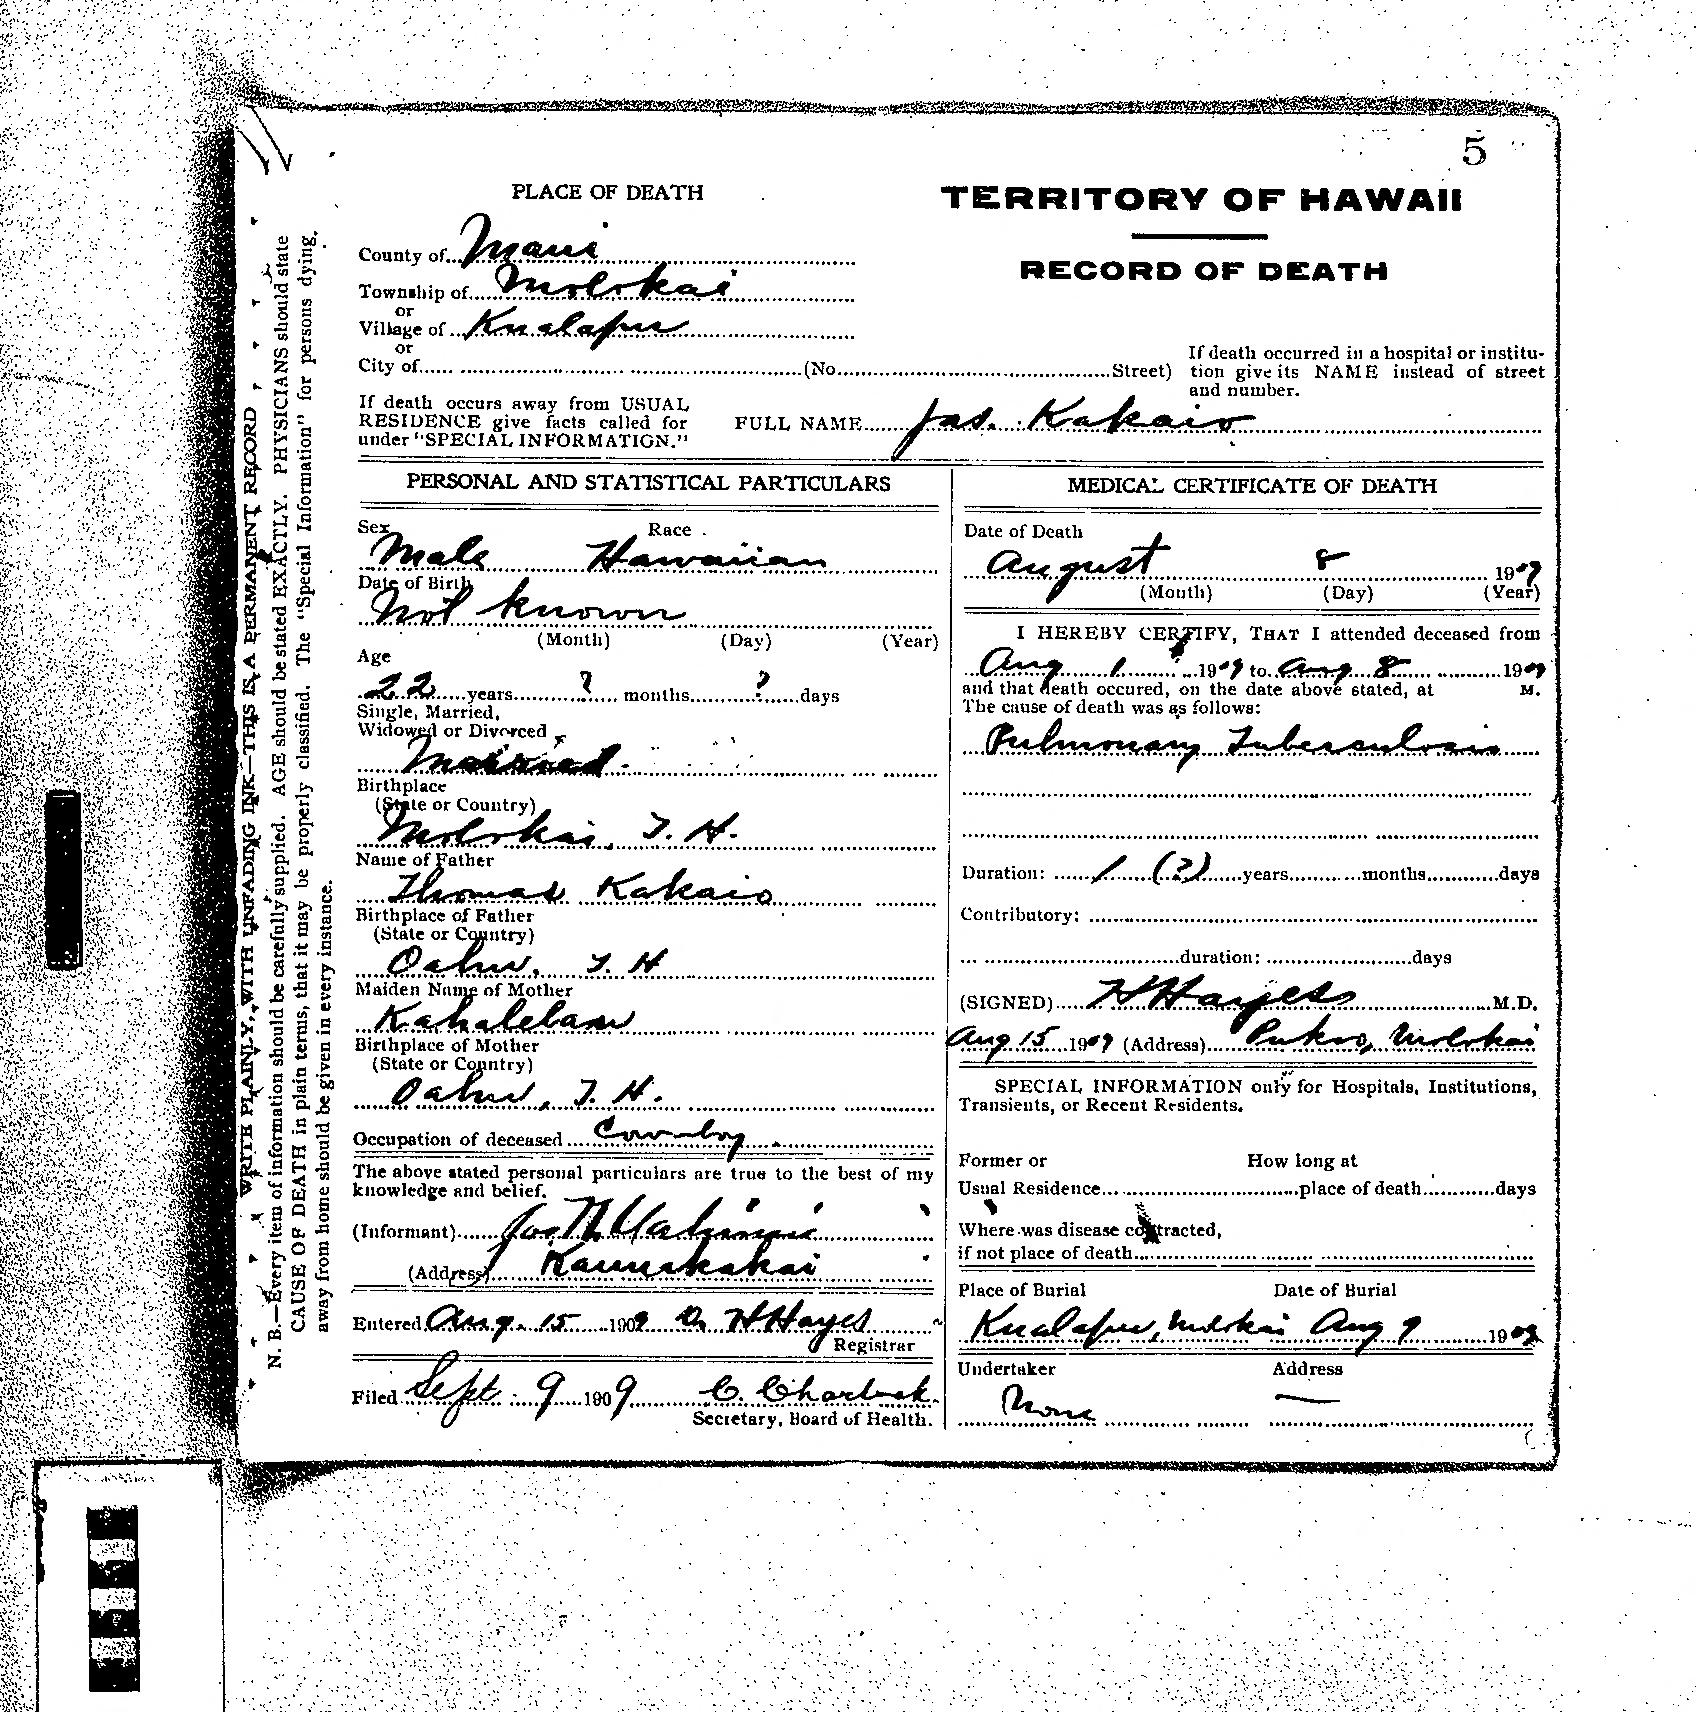 5
PLACE OF DEATH
TERRITORY OF HAWAII
RECORD OF DEATH
County of Maui
Township of Molokai
or
Village of Kualapuu
or
City of (No. Street)
If death occurred in a hospital or institu-
tion give its NAME instead of street
and number.
If death occurs away from USUAL
RESIDENCE give facts called for
under "SPECIAL INFORMATION."
FULL NAME Jas. Kakaio
WRITE PLAINLY, WITH UNFADING INK—THIS IS A PERMANENT RECORD
N. B.—Every item of information should be carefully supplied. AGE should be stated EXACTLY. PHYSICIANS should state
CAUSE OF DEATH in plain terms, that it may be properly classified. The "Special Information" for persons dying
away from home should be given in every instance.
PERSONAL AND STATISTICAL PARTICULARS
Sex Race
Male Hawaiian
Date of Birth
Not known
(Month) (Day) (Year)
Age
22 years ? months ? days
Single, Married,
Widowed or Divorced
Married
Birthplace
(State or Country)
Molokai, T. H.
Name of Father
Thomas Kakaio
Birthplace of Father
(State or Country)
Oahu, T. H
Maiden Name of Mother
Birthplace of Mother
(State or Country)
Oahu, T. H.
Occupation of deceased Cow-boy
The above stated personal particulars are true to the best of my
knowledge and belief.
(Informant)
(Address) Kaunakakai
Entered Aug. 15 1909 H Hayes
Registrar
Filed Sept. 9 1909
Secretary, Board of Health.
MEDICAL CERTIFICATE OF DEATH
Date of Death
August 8 1909
(Month) (Day) (Year)
I HEREBY CERTIFY, THAT I attended deceased from
Aug 1 1909 to Aug 8 1909
and that death occured, on the date above stated, at M.
The cause of death was as follows:
Pulmonary Tuberculosis
Duration: 1 (?) years months days
Contributory:
duration: days
(SIGNED) H Hayes M.D.
Aug 15 1909 (Address) Pukoo, Molokai
SPECIAL INFORMATION only for Hospitals, Institutions,
Transients, or Recent Residents.
Former or How long at
Usual Residence place of death days
Where was disease contracted,
if not place of death
Place of Burial Date of Burial
Kualapuu, Molokai Aug 9 1909
Undertaker Address
None —